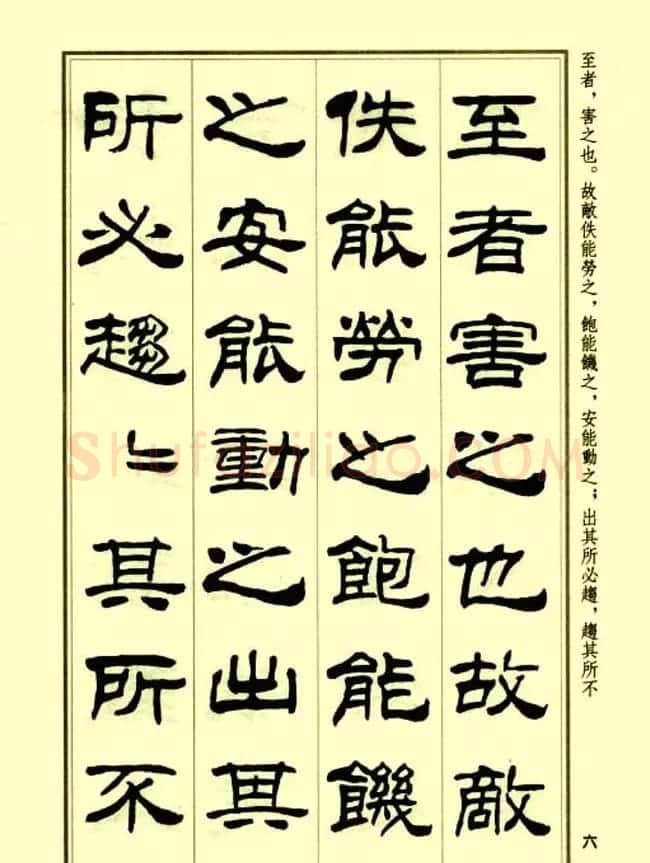 至者，害之也。故敵佚能勞之，飽能饑之，安能動之；出其所必趨，趨其所不
至者害之也故敵
佚能勞之飽能饑
之安能動之出其
所必趨〻其所不
六
Shufaziliao.COM